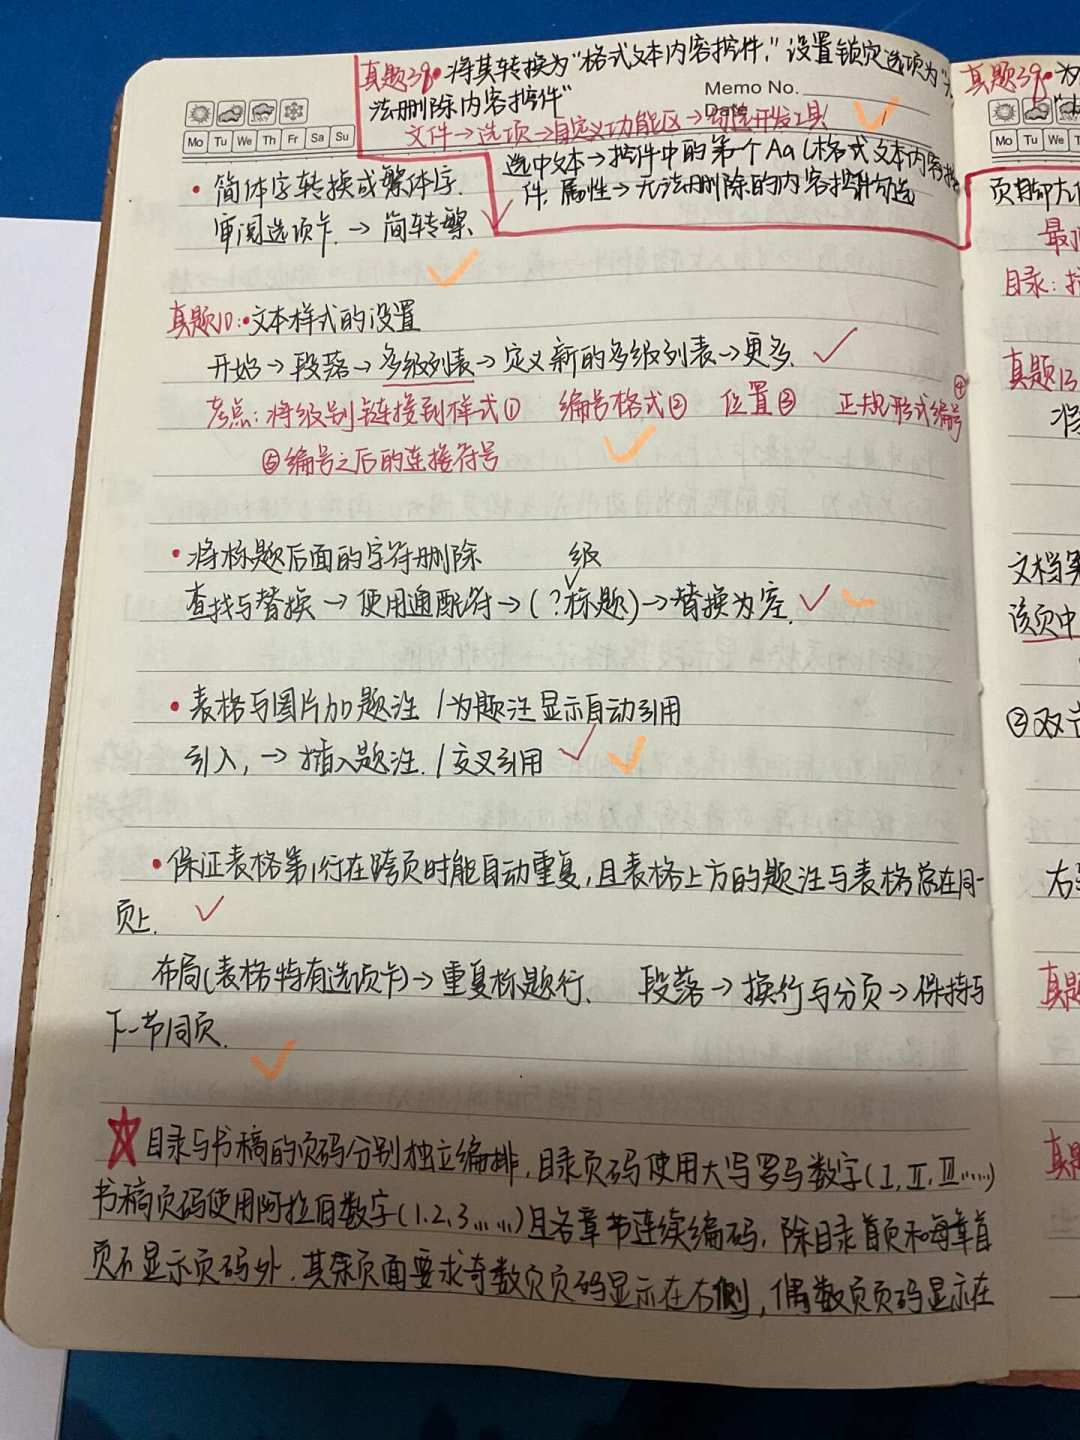 真题39·将其转换为“格式文本内容控件,”设置锁定选项为“无
法删除内容控件”
Memo No.
Date
文件→选项→自定义功能区→勾选开发工具
选中文本→控件中的第一个Aa(格式文本内容控
件.属性→无法删除的内容控件勾选
Mo Tu We Th Fr Sa Su
·简体字转换成繁体字.
审阅选项卡.→简转繁.
真题10:·文本样式的设置
开始→段落→多级列表→定义新的多级列表→更多.
考点:将级别链接到样式① 编号格式② 位置③ 正规形式编号④
⑤编号之后的连接符号
·将标题后面的字符删除 级
查找与替换→使用通配符→(?标题)→替换为空.
·表格与图片加题注/为题注显示自动引用
引入,→插入题注./交叉引用
·保证表格第1行在跨页时能自动重复,且表格上方的题注与表格总在同一
页上.
布局(表格特有选项卡)→重复标题行、 段落→换行与分页→保持与
下一节同页.
目录与书稿的页码分别独立编排,目录页码使用大写罗马数字(I,II,III……)
书稿页码使用阿拉伯数字(1.2.3……)且各章节连续编码,除目录首页和每章首
页不显示页码外.其余页面要求奇数页页码显示在右侧,偶数页页码显示在
真题39·为
Mo Tu We
页脚左
目录:
真题13
将
文档第
该页中
③双击
右
真题
真题